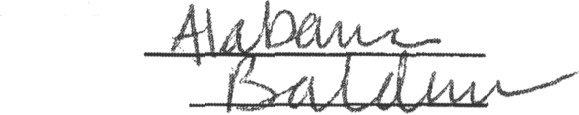 Alabama
Baldwin